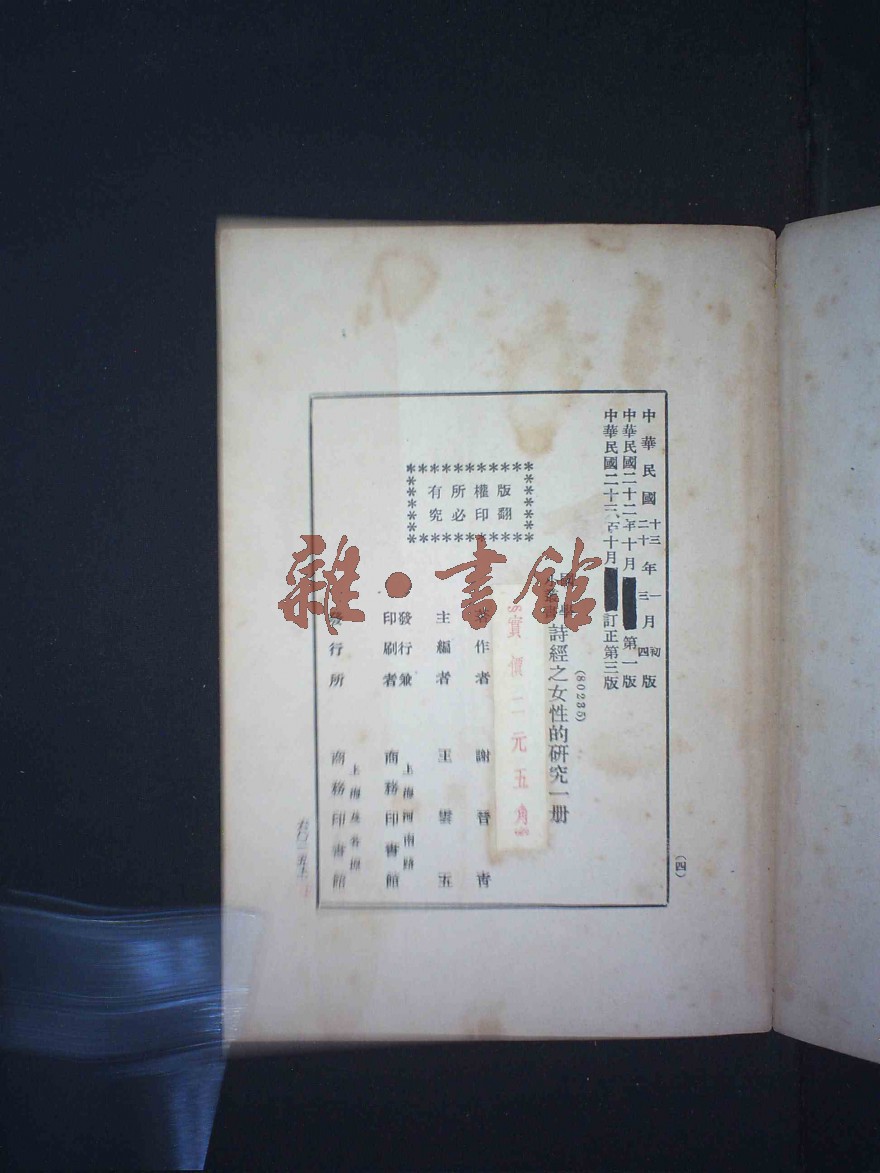 中華民國十三年一月初版
二十三四
中華民國二十二年十月第一版
中華民國二十三年十月訂正第三版
(80235)
國學
小叢書
詩經之女性的研究一册
實價二元五角
版權所有
翻印必究
著作者 謝晉青
主編者 王雲五
發行兼
印刷者
上海河南路
商務印書館
發行所
上海及各埠
商務印書館
(四)
雜·書館